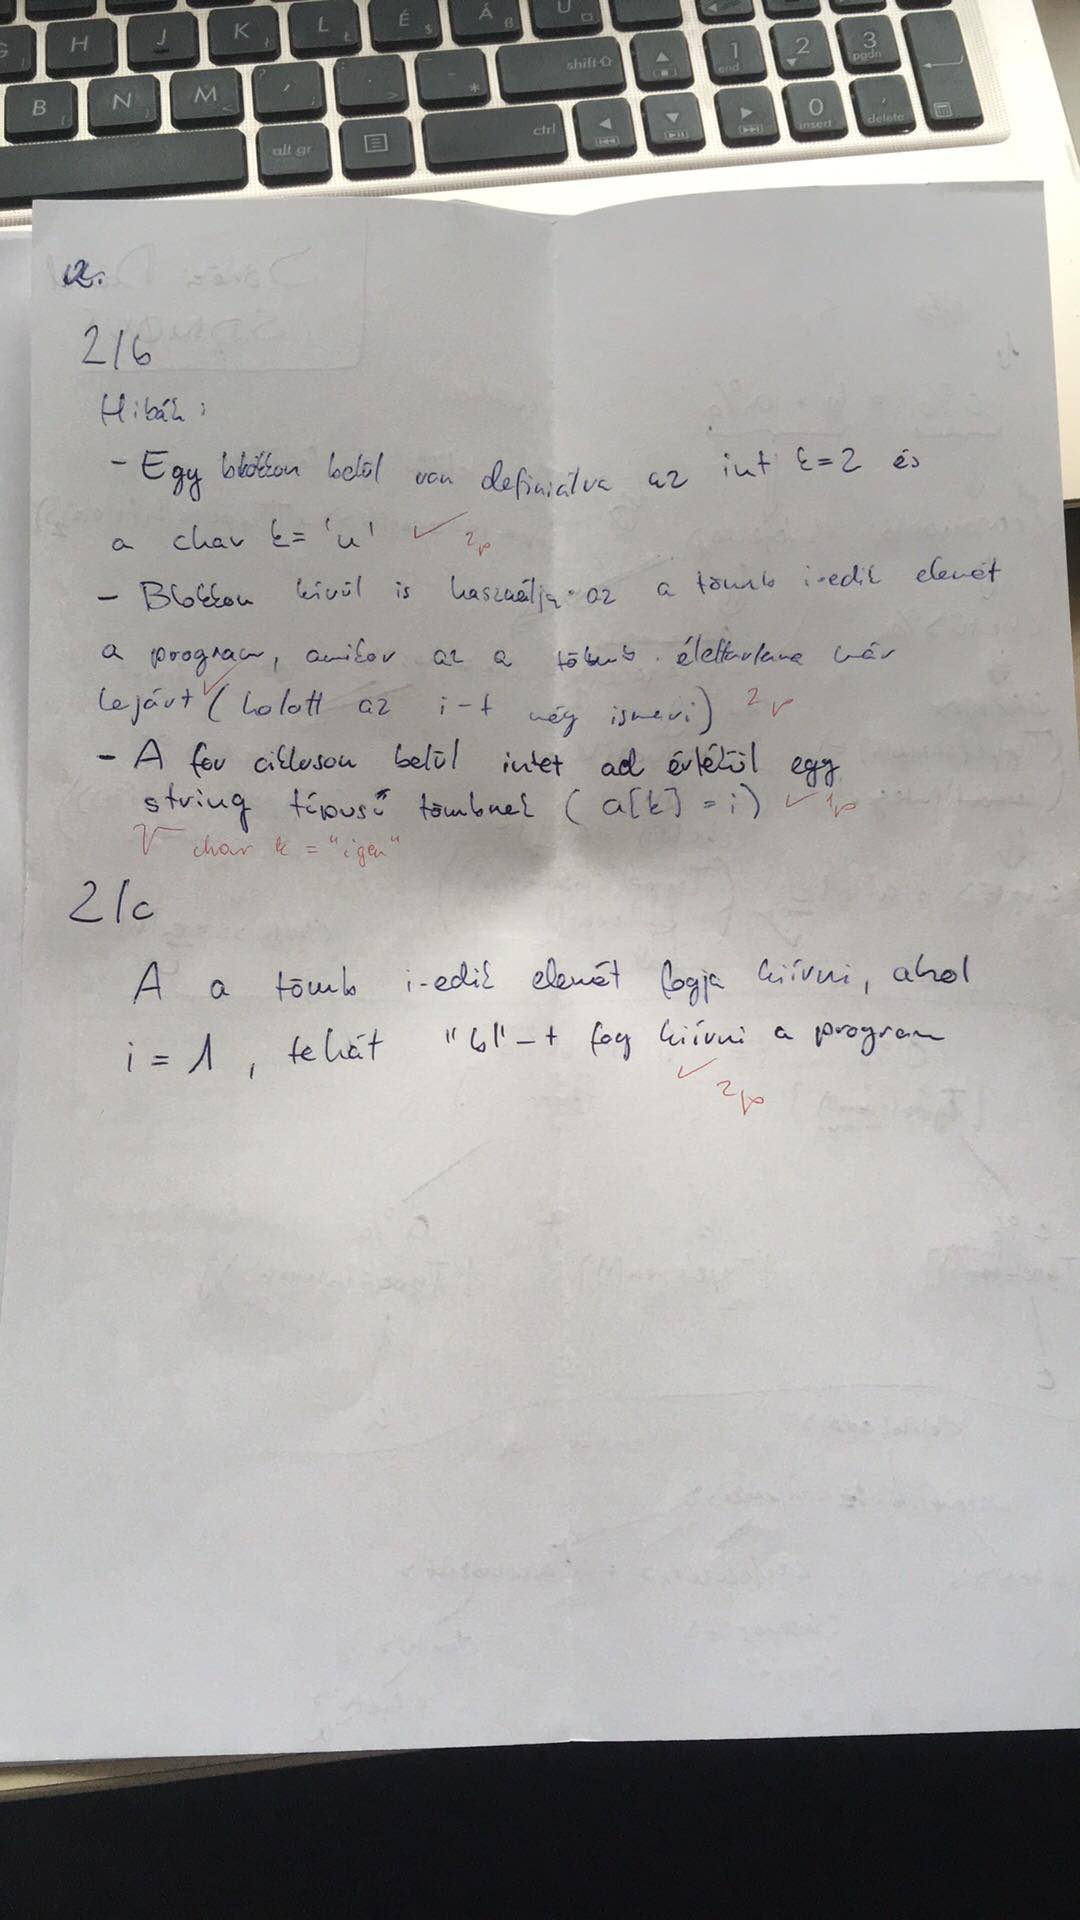 H J K L É Á U
B N M shift 1 end 2 3 pgdn
alt gr ctrl 0 insert delete
2.
2/b
Hibák:
- Egy blokkon belül van definiálva az int k=2 és
a char k= 'u' ✓ 2p
- Blokkon kívül is használja az a tömb i-edik elemét
a program, amikor az a tömb élettartama már
lejárt ✓ (holott az i-t még ismeri) 2p
- A for cikluson belül intet ad értékül egy
string típusú tömbnek (a[k] = i) ✓ 1p
char k = "igen"
2/c
A a tömb i-edik elemét fogja kiírni, ahol
i = 1, tehát "b"-t fog kiírni a program
✓ 2p